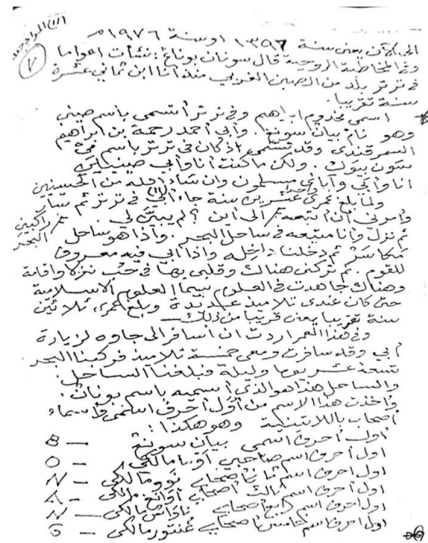 (١١) المواجهة
٧
الى الآن يعنى سنة ١٣٩٦ او سنة ١٩٧٦ م
وفى المخاطبة الروحية قال سونان بوناغ: نشأت اعواما
فى ترتر بلد من الصين الغربي منذ انا ابن ثمانى عشرة
سنة تقريبا.
اسمى مخدوم ابراهم وفى ترتر أتسمى باسم صينى
وهو نام بيان سونغ. وأبي احمد رحمة بن ابراهيم
السمرقندى وقد اذ كان فى ترتر باسم
سون بيوك. ولكن ما كنت أنا وأبي صينيين
انا وأبي وآبائى مسلمون وان شاء الله من الحسينيين
ولما بلغ عمرى عشرين سنة جاء أبى فى ترتر ثم سار
وامرنى أن أتبعه الى اين ألم يبين لى
راكبين البحر
ثم نزل وانا متبعه فى ساحل البحر. واذا هو ساحل
مكاسر ثم دخلنا داخله واذا أبى فيه معروفا
للقوم. ثم تركنى هناك وقلبى بها فى حب نزلا واقامة
وهناك جاهدت فى العلوم سيما العلوم الاسلامية
حتى كان عندى تلاميذ عديدة وبلغ عمرى ثلاثين
سنة تقريبا يعنى قريبا من ذلك
وفى هذا العمر اردت ان أسافر الى جاوه لزيارة
أبي وقد سافرت ومعى خمسة تلاميذ فركبنا البحر
تسعة عشر يوما وليلة فبلغنا الساحل.
والساحل هذا هو الذى أسميه باسم بونان.
واخذت هذا الاسم من أول أحرف اسمى واسماء
أصحاب باللاتينية وهو هكذا:
أول أحرف اسمى بيان سونغ — B
اول أحرف اسم صاحبى مالكى — O
اول احرف اسم ثانى اصحابى نووما لكى — N
اول احرف اسم ثالث اصحابى مالكى — A
اول احرف اسم رابع اصحابى مالكى — N
اول احرف اسم خامس اصحابى غنتور مالكى — G